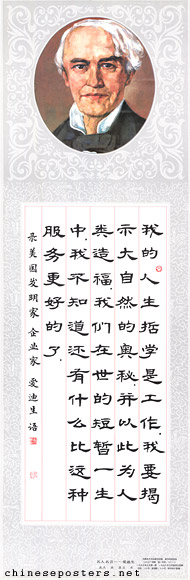 我的人生哲学是工作,我要揭
示大自然的奥秘,并以此为人
类造福,我们在世的短暂一生
中,我不知道还有什么比这种
服务更好的了。
录美国发明家 企业家 爱迪生 语
chineseposters.net